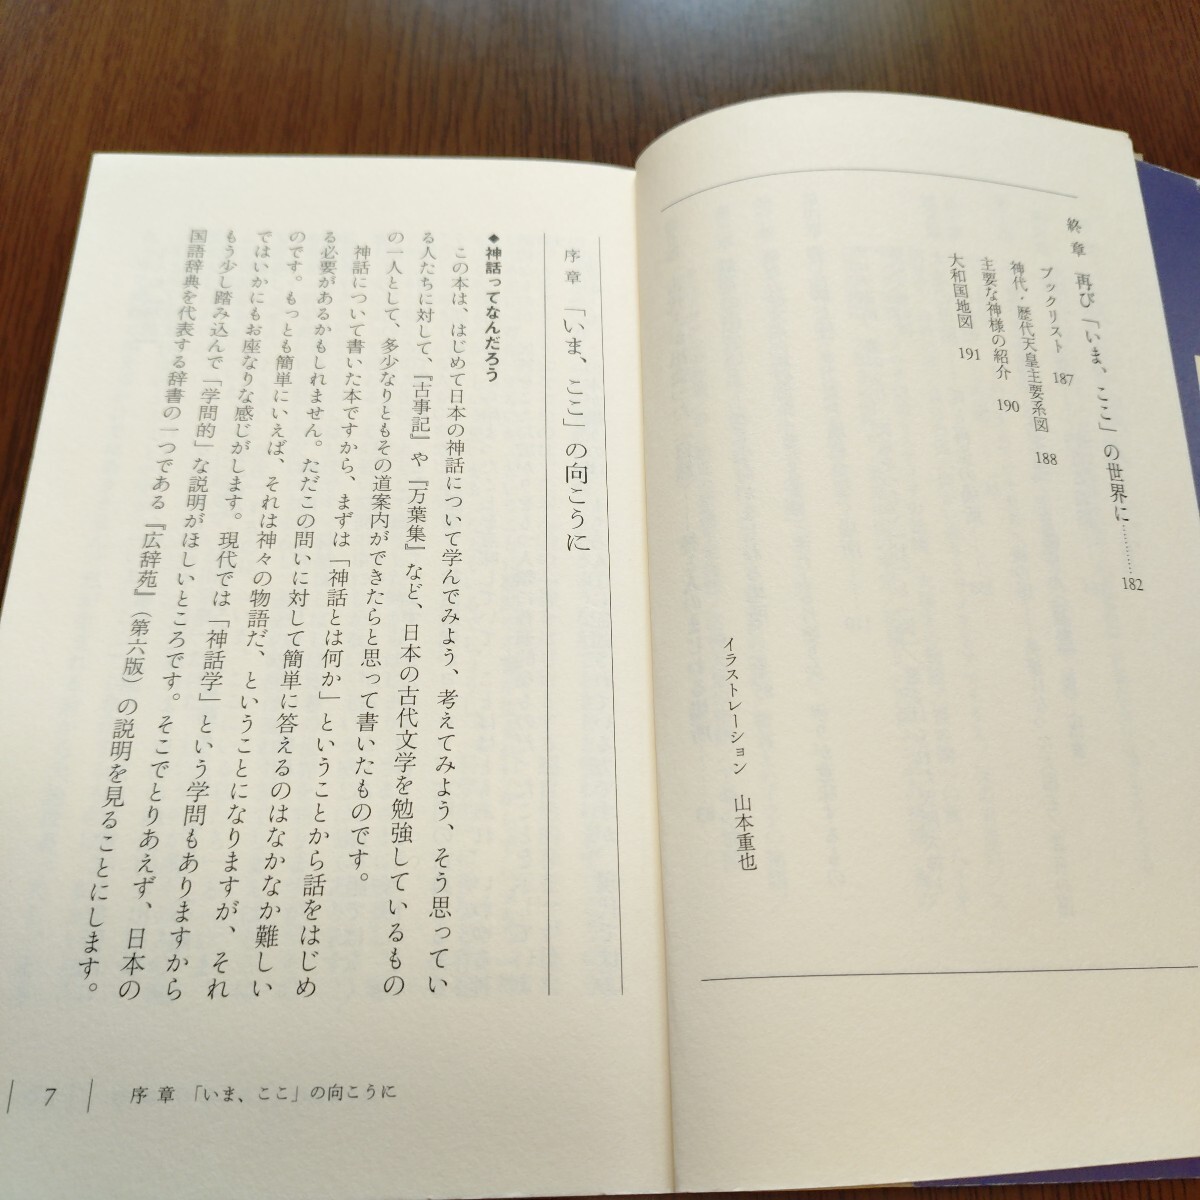 終章　再び「いま、ここ」の世界に…………182
ブックリスト　187
神代・歴代天皇主要系図　188
主要な神様の紹介　190
大和国地図　191
イラストレーション　山本重也
序章　「いま、ここ」の向こうに
◆神話ってなんだろう
この本は、はじめて日本の神話について学んでみよう、考えてみよう、そう思ってい
る人たちに対して、『古事記』や『万葉集』など、日本の古代文学を勉強しているもの
の一人として、多少なりともその道案内ができたらと思って書いたものです。
神話について書いた本ですから、まずは「神話とは何か」ということから話をはじめ
る必要があるかもしれません。ただこの問いに対して簡単に答えるのはなかなか難しい
のです。もっとも簡単にいえば、それは神々の物語だ、ということになりますが、それ
ではいかにもお座なりな感じがします。現代では「神話学」という学問もありますから
もう少し踏み込んで「学問的」な説明がほしいところです。そこでとりあえず、日本の
国語辞典を代表する辞書の一つである『広辞苑』（第六版）の説明を見ることにします。
7　序章　「いま、ここ」の向こうに